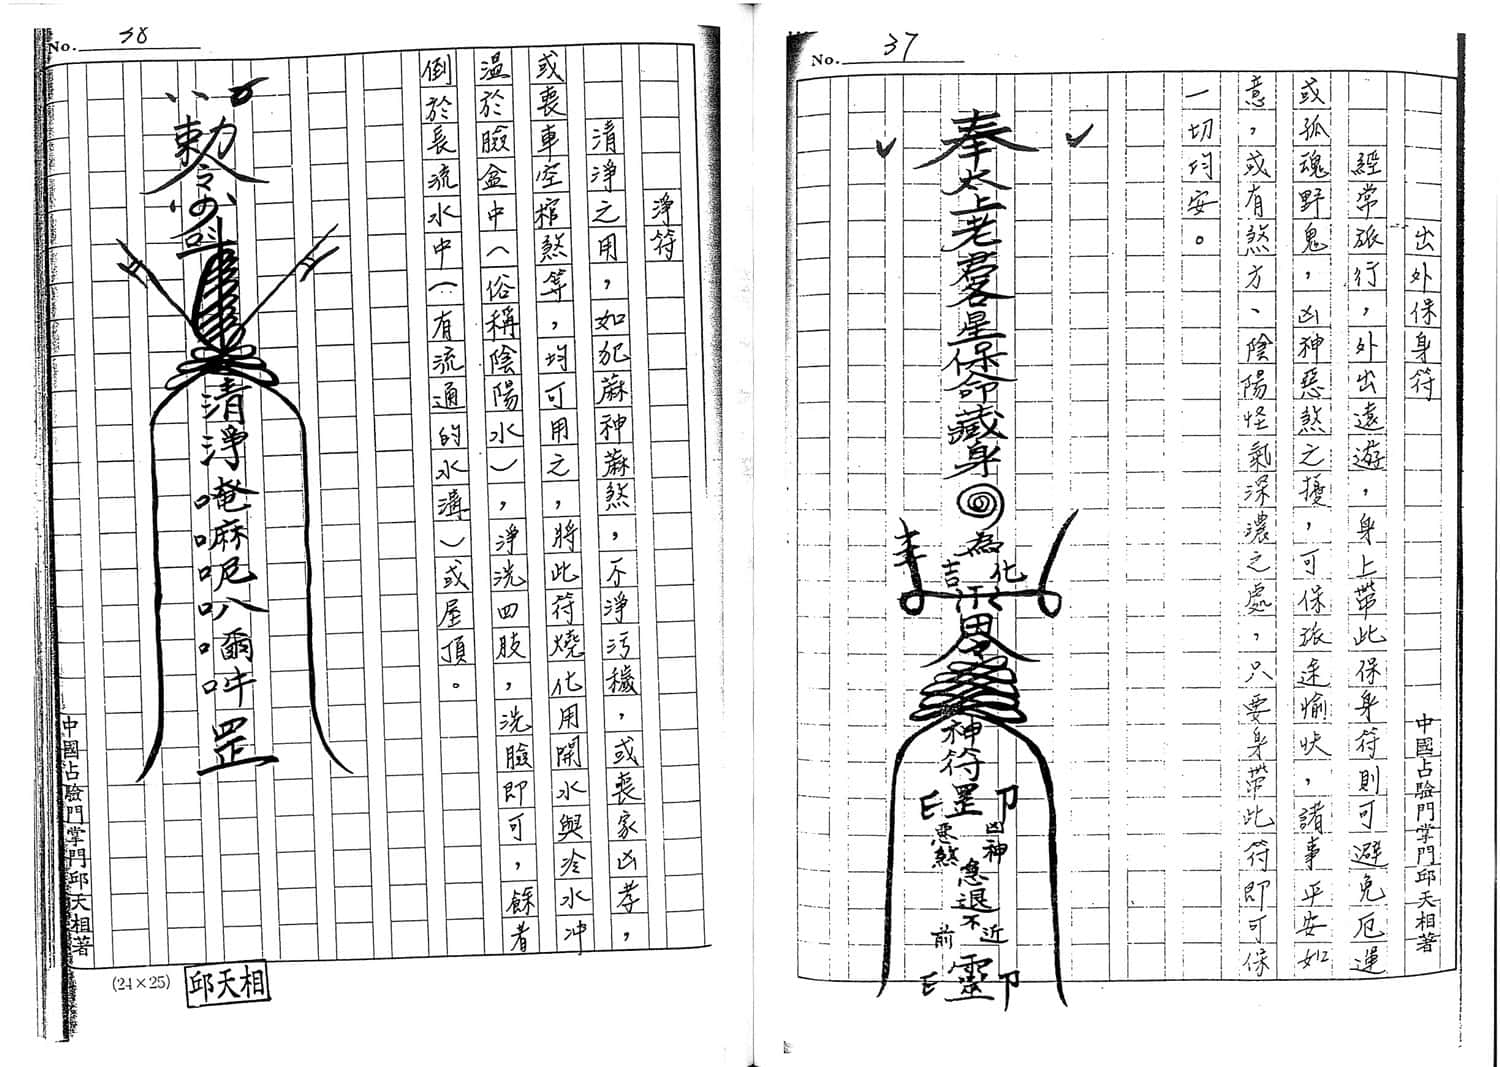 No. 37
出外保身符
經常旅行，外出遠遊，身上帶此保身符則可避免厄運
或孤魂野鬼，凶神惡煞之擾，可保旅途愉快，諸事平安如
意，或有煞方、陰陽怪氣深濃之處，只要身帶此符即可保
一切均安。
奉太上老君星保命藏身
為
吉化
李
田
神符罡
印
凶神
惡煞
急退
不近
前
靈
印
中國占驗門掌門邱天相著
No. 38
淨符
清淨之用，如犯蔴神蔴煞，不淨污穢，或喪家凶孝，
或喪車空棺煞等，均可用之，將此符燒化用開水與冷水冲
溫於臉盆中（俗稱陰陽水），淨洗四肢，洗臉即可，餘者
倒於長流水中（有流通的水溝）或屋頂。
勅令
清淨唵嘛呢叭嚼吽罡
中國占驗門掌門邱天相著
(24×25)
邱天相